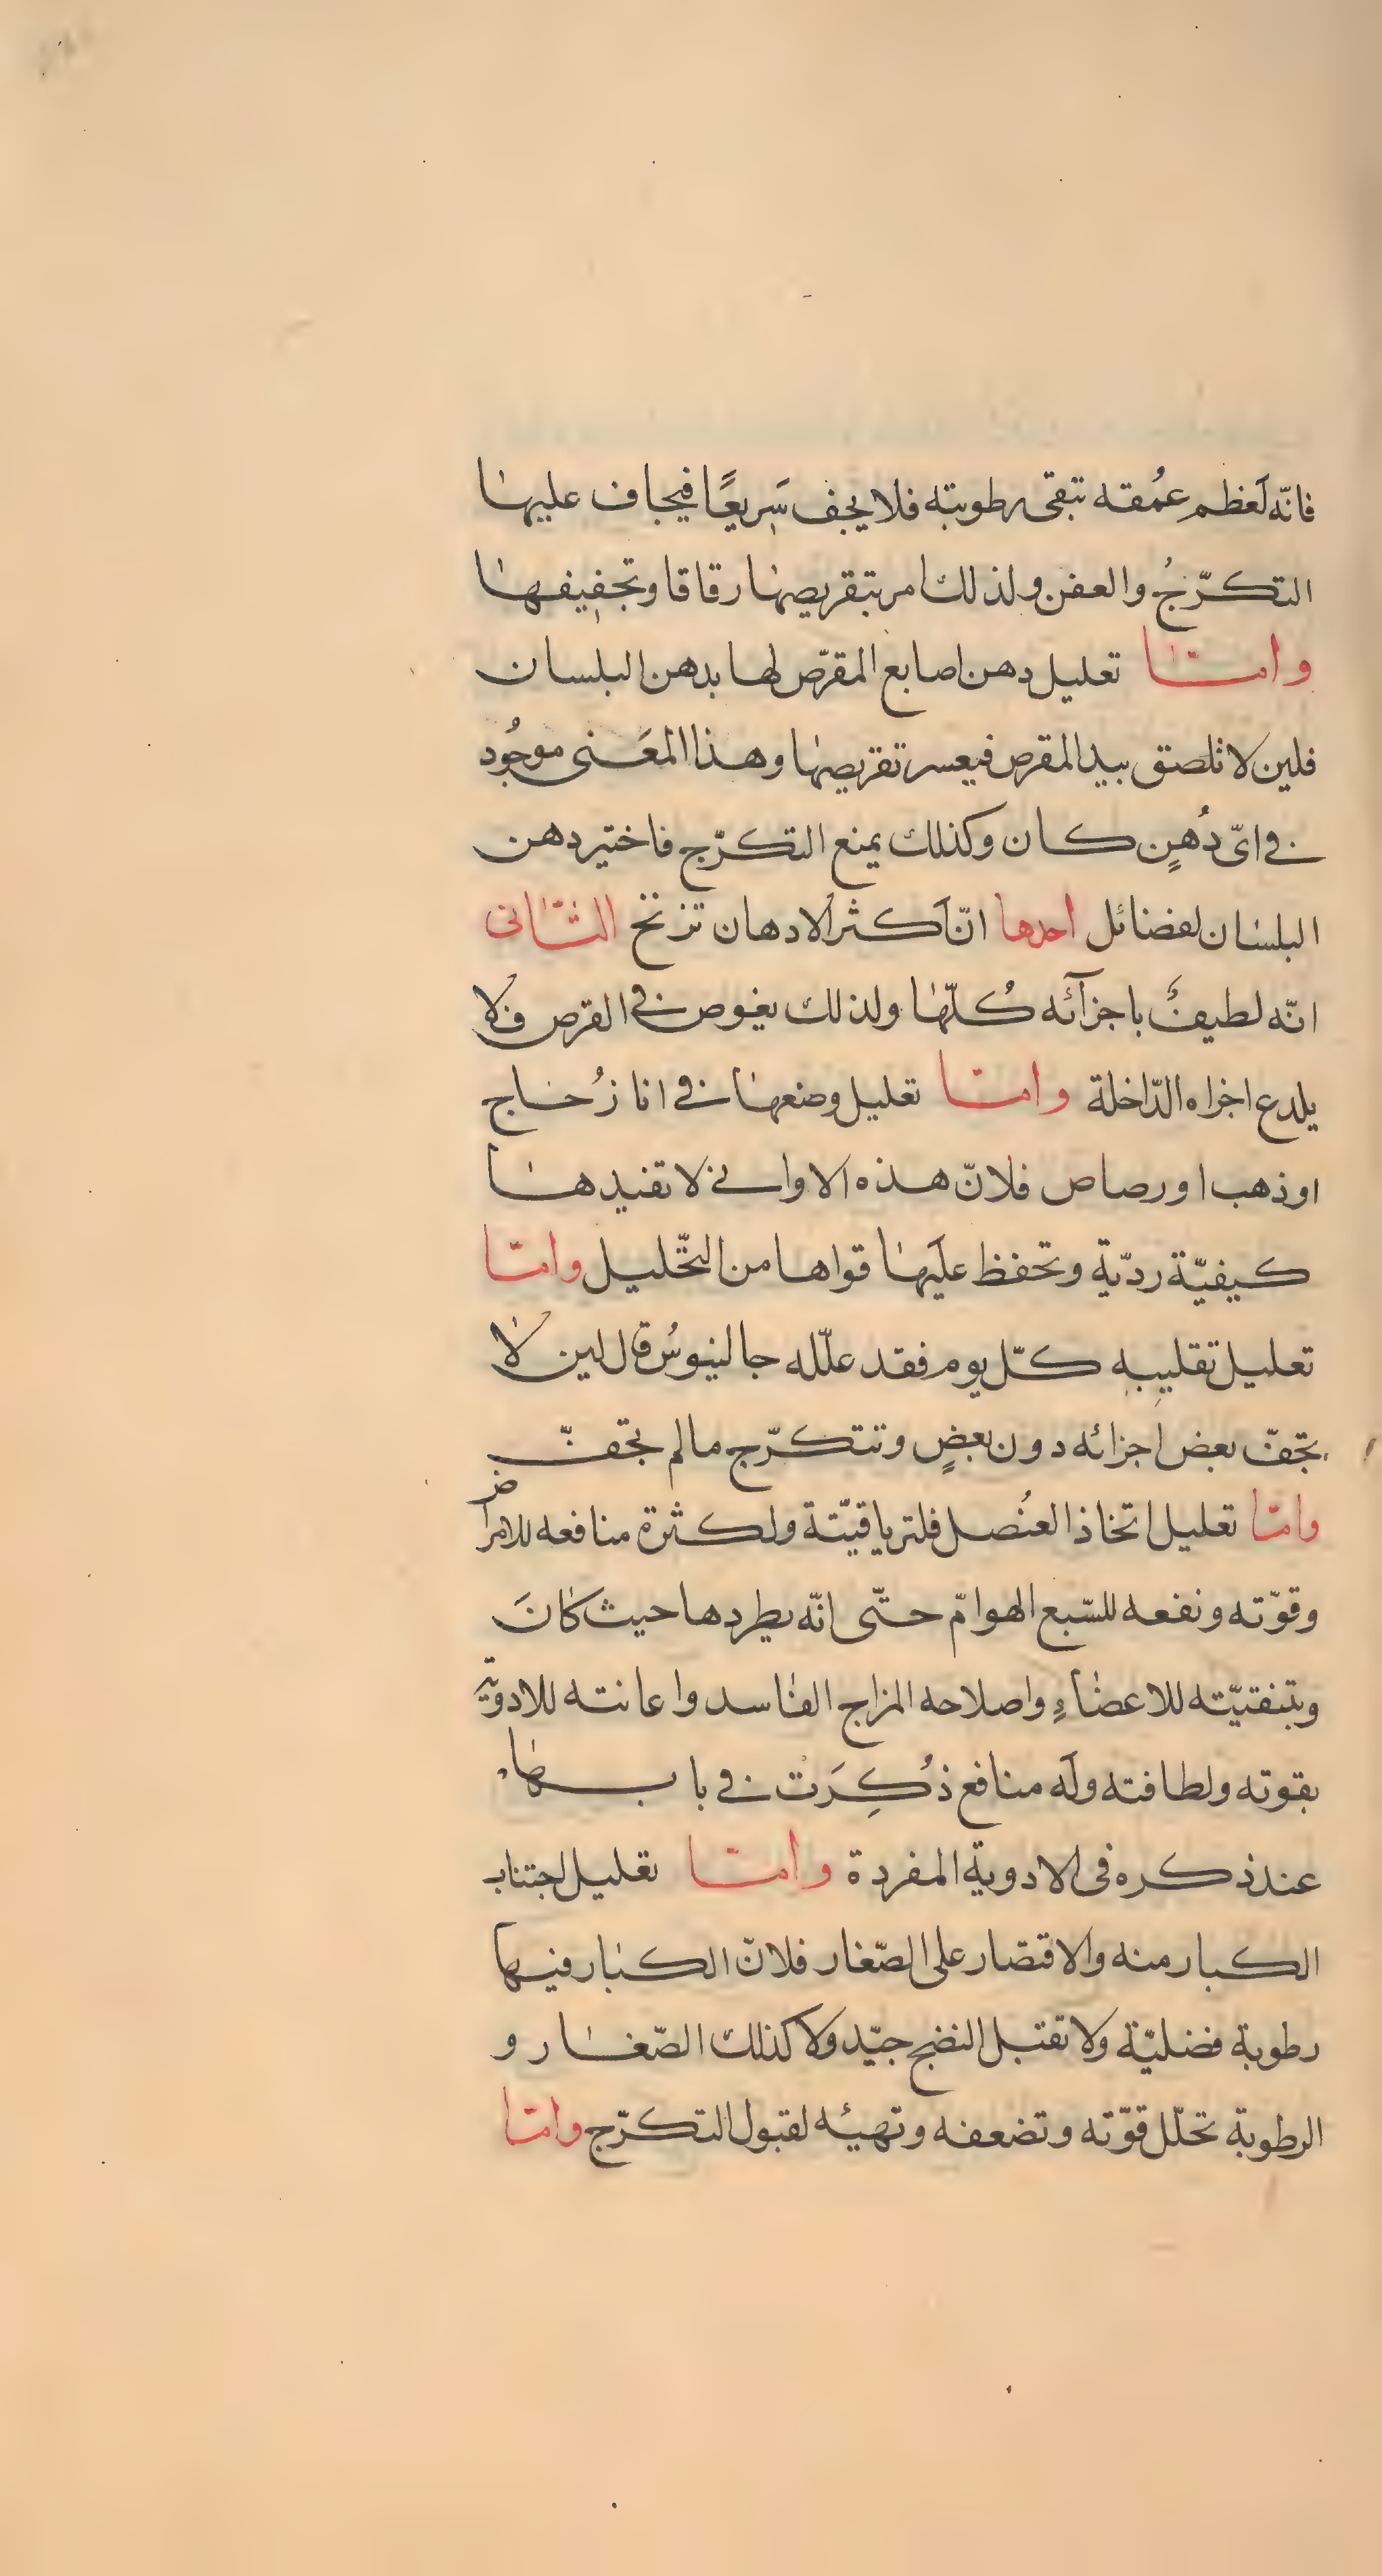 فانّه لَعظم عمُقه تبقى رطوبته فلا يجف سَريعًا فيخاف عليها
التكرّجُ والعفن ولذلك امر بتقريصها رقاقا وتجفيفها
وامّا تعليل دهن اصابع المقرّص لها بدهن البلسان
فلين لا تلصق بيد المقرص فيعسر تقريصها وهذا المعَنى موجُود
في اىّ دُهنٍ كان وكذلك يمنع التكرّج فاختير دهن
البلسان لفضائل احدها انّ اَكثر الادهان تزنخ الثّانى
انّه لطيفٌ باجزآئه كُلّها ولذلك يغوص في القرص فلا
يلدع اخراه الدّاخلة وامّا تعليل وضعها في انا زُجاج
او ذهب او رصاص فلانّ هذه الاواني لا تفيدها
كيفيّة رديّة وتحفظ علَيها قواها من التّحليل وامّا
تعليل تقليبه كلّ يوم فقد علّله جالينوسُ قال لين لا
تجفّ بعض اجزائه دون بعضٍ وتتكرّج مالم تجفّ
وامّا تعليل اتخاذ العنُصل فلترياقيّته ولكثرة منافعه للامراض
وقوّته ونفعه للسّبع الهوامّ حتّى انّه يطردها حيث كانَ
وبتنقتيّته للاعضاءِ واصلاحه المزاج الفاسد واعانته للادوية
بقوته ولطافته ولَه منافع ذُكِرَت في بابها
عند ذكره فى الادوية المفردة وامّا تعليل اجتناب
الكبار منه والاقتصار على الصّغار فلانّ الكبار فيها
رطوبة فضليّة ولا تقبل النضج جيّد ولا كذلك الصّغار و
الرطوبة تحلّل قوّته وتضعفه وتهيئه لقبول التكرّج وامّا